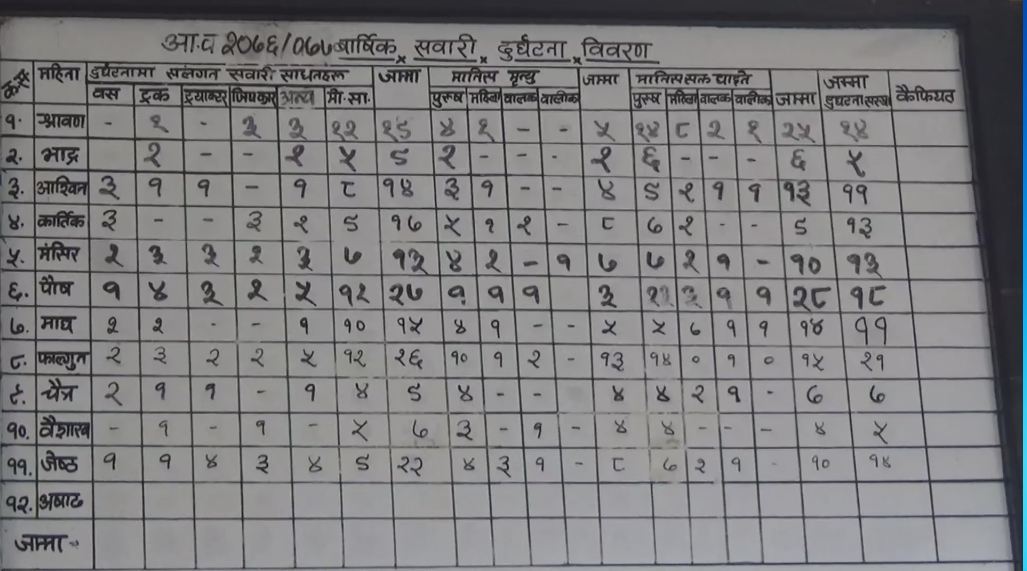 आ.व २०७६/०७७ बार्षिक सवारी दुर्घटना विवरण
क्र.सं महिना दुर्घटनामा संलग्न सवारी साधनहरू जाम्मा मानिस मृत्यु जाम्मा मानिससक्त घाइते जाम्मा जम्मा दुर्घटना संख्या कैफियत
वस ट्रक ट्र्याक्टर जिपकार अन्य मो.सा. पुरुष महिला वालक वालीका पुरुष महिला वालक वालीका
१. श्रावण - १ - ३ ३ १२ १९ ४ १ - - ५ १४ ८ २ १ २५ १४
२. भाद्र २ - - १ ५ ९ २ - - - २ ६ - - - ६ ५
३. आश्विन ३ १ १ - १ ८ १४ ३ १ - - ४ ९ २ १ १ १३ ११
४. कार्तिक ३ - - ३ २ ९ १७ ५ १ २ - ८ ७ २ - - ९ १३
५. मंसिर २ ३ ३ २ ३ ७ १३ ४ २ - १ ७ ७ २ १ - १० १३
६. पौष १ ४ ३ २ ५ १२ २७ १ १ १ ३ २३ ३ १ १ २८ १८
७. माघ २ २ - - १ १० १५ ४ १ - - ५ ५ ७ १ १ १४ ११
८. फाल्गुन २ ३ २ २ ५ १२ २६ १० १ २ - १३ १४ ० १ ० १५ २१
९. चैत्र २ १ १ - १ ४ ९ ४ - - - ४ ४ २ १ - ७ ७
१०. वैशाख - १ - १ - ५ ७ ३ - १ - ४ ४ - - - ४ ५
११. जेष्ठ १ १ ४ ३ ४ ९ २२ ४ ३ १ - ८ ७ २ १ - १० १४
१२. अषाढ
जाम्मा -